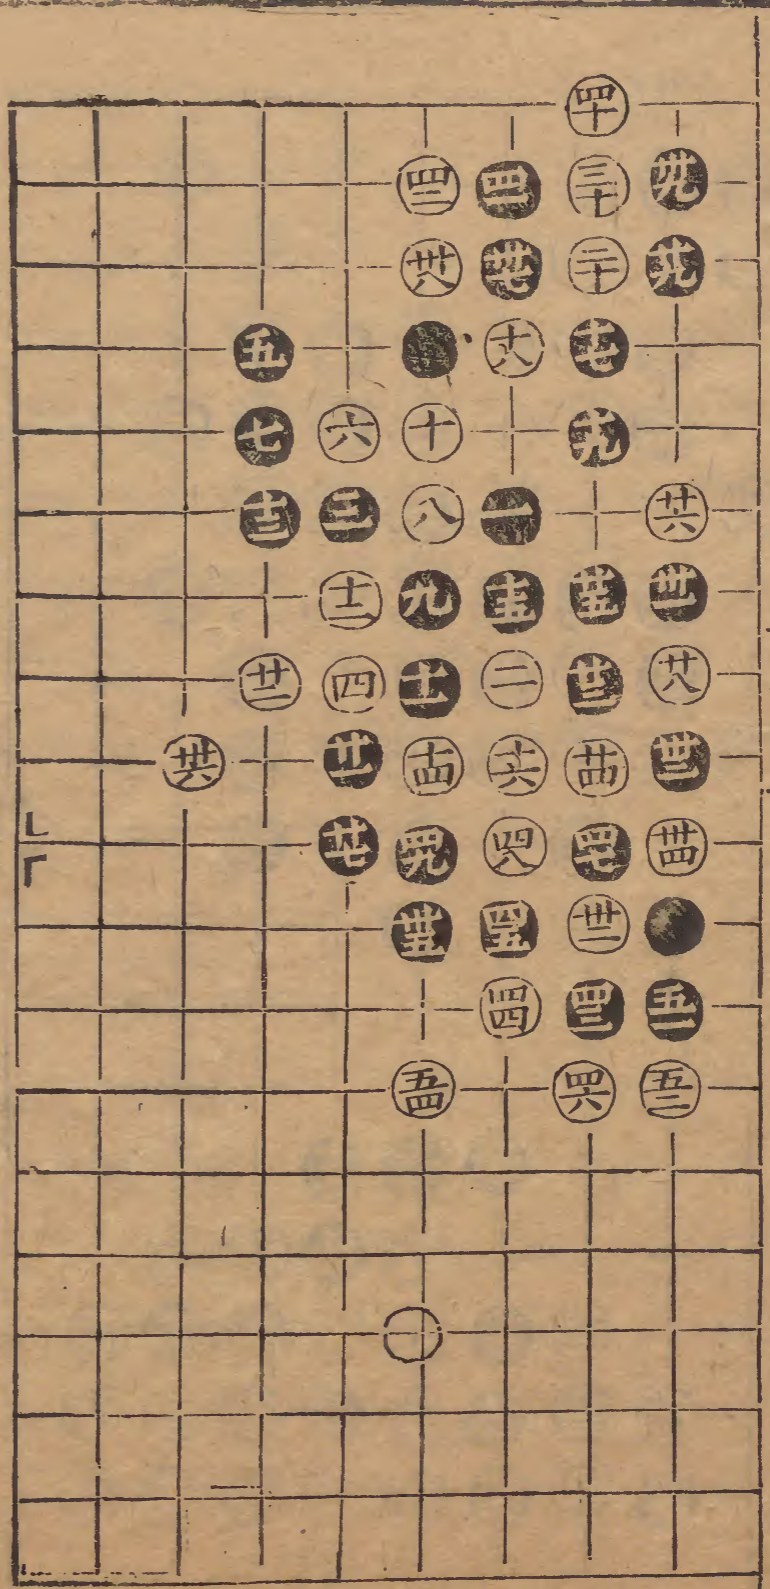 四十
四二 四一 三十 卅九
卅八 卅七 二十 廿九
五 十八 十七
七 六 十 十九
十三 三 八 一 廿六
十二 九 十五 廿五 卅一
廿二 四 十一 二 廿三 廿八
卅六 廿一 十四 十六 廿四 卅三
廿七 四九 四八 四七 卅四
卅五 四五 卅二
四四 四三 五一
五四 四六 五二